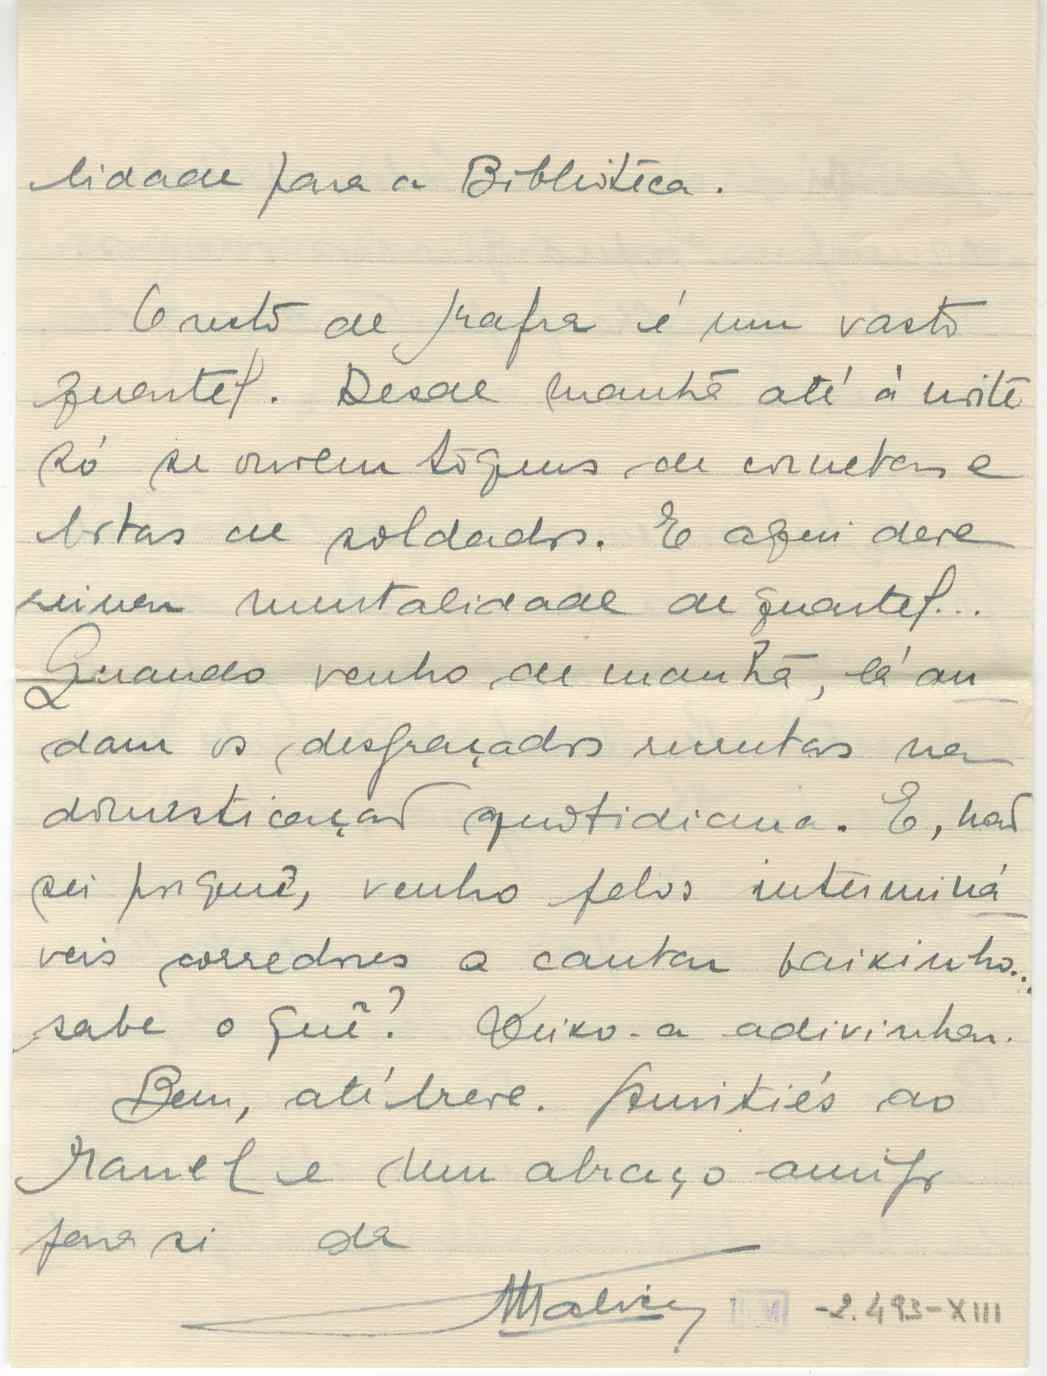 lidade para a Bibliotéca.
O resto de Mafra é um vasto
quartel. Desde manhã até á noite
só se ouvem tóques de cornetas e
botas de soldados. E aqui deve
reinar mentalidade de quartel...
Quando venho de manhã, lá an
dam os desgraçados recrutas na
domesticação quotidiana. E, não
sei porquê, venho pelos interminá
veis corredores a cantar baixinho...
sabe o quê? Deixo-a adivinhar.
Bem, até breve. Amitiés ao
Manel e um abraço amigo
para si da
Malvin
-2.493-XIII